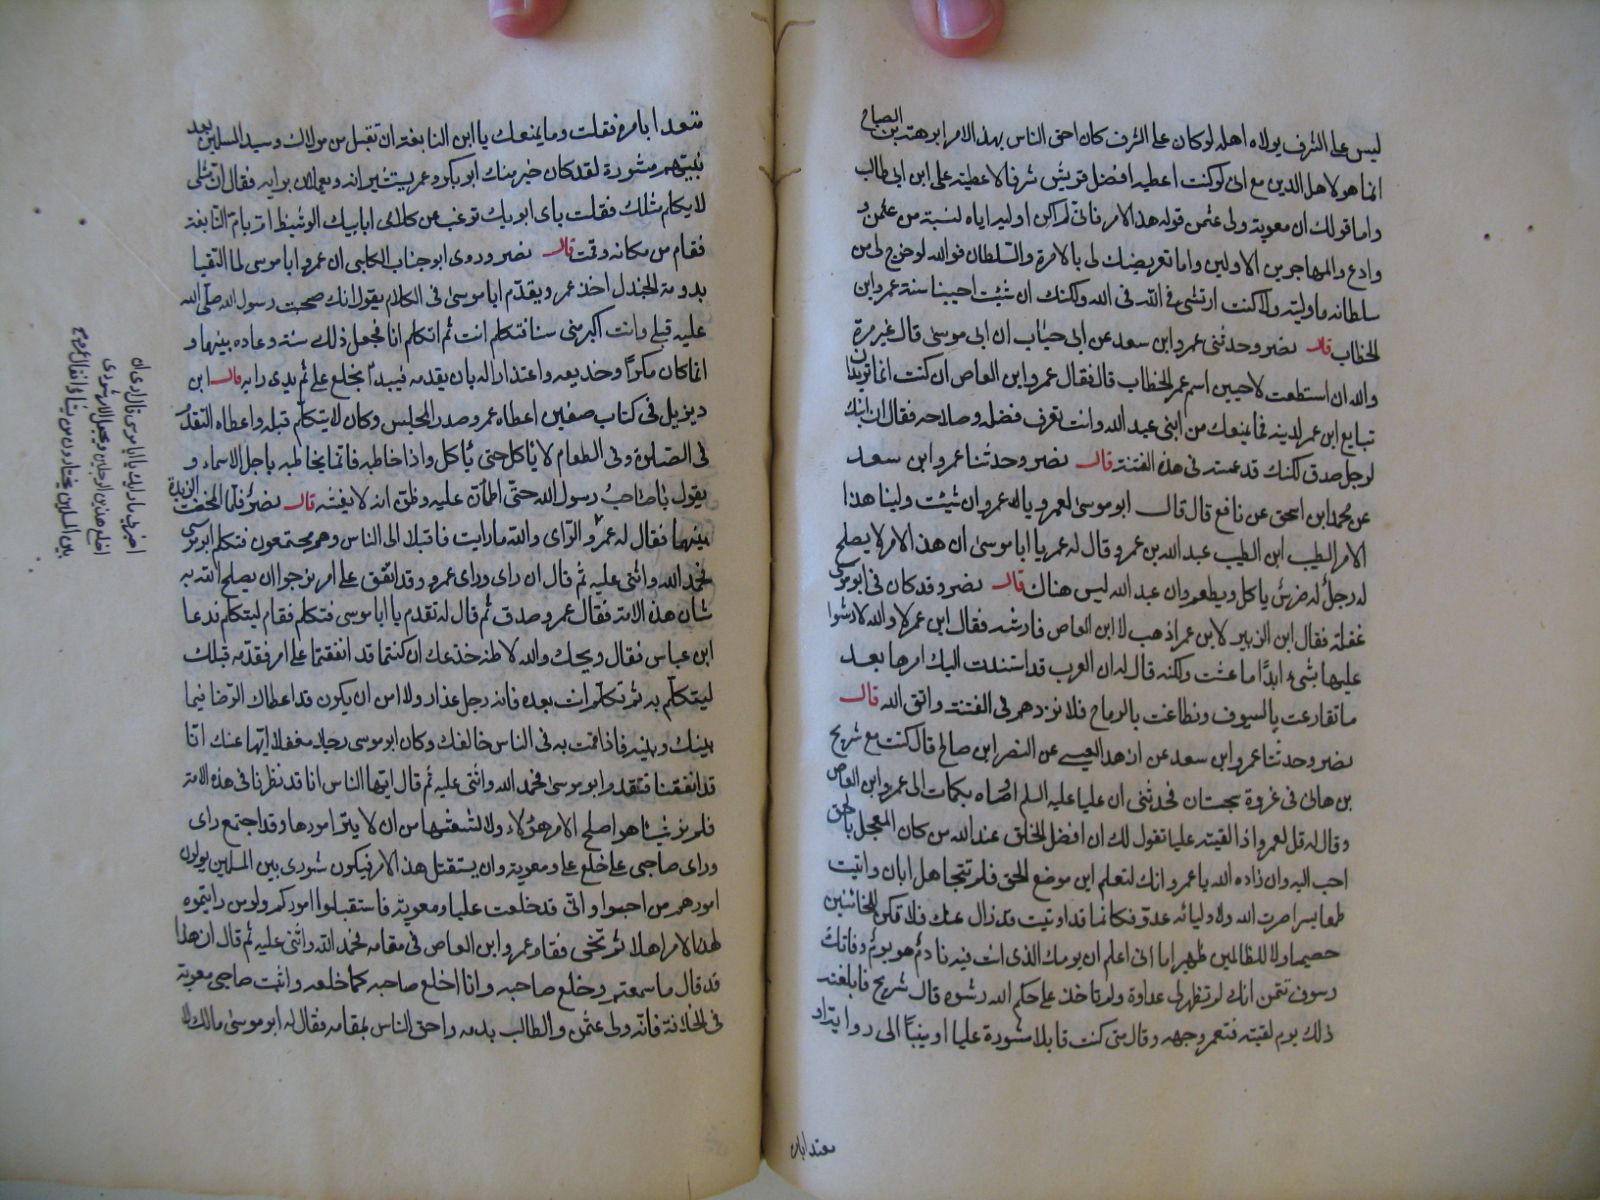 ليس على الشرف يولاه اهله لو كان على الشرف كان احق الناس بهذا الامر ابرهة بن الصباح
انما هو لاهل الدين مع انى لو كنت اعطيه افضل قريش شرفا لاعطيته على ابن ابى طالب
واما قولك ان معوية ولى عثمن فوله هذا الامر فانى لم اكن اوليه اياه لنسبته من عثمن و
وادع المهاجرين الاولين واما تعريضك لى بالامرة والسلطان فوالله لو خرج لى من
سلطانه ما وليته ولا كنت ارتشى فى الله ولكنك ان شئت احيينا سنة عمر ابن
الخطاب قال نصر وحدثنى عمر ابن سعد عن ابى جناب ان ابى موسى قال غير مرة
والله ان استطعت لاحيين اسم عمر الخطاب قال فقال عمرو ابن العاص ان كنت انما تريد ان
تبايع ابن عمر لدينه فما يمنعك من ابنى عبد الله وانت تعرف فضله وصلاحه فقال ان ابنك
لرجل صدق لكنك قد غمسته فى هذه الفتنة قال نصر وحدثنا عمر ابن سعد
عن محمد ابن اسحق عن نافع قال قال ابو موسى لعمرو يا عمرو ان شئت ولينا هذا
الامر الطيب ابن الطيب عبد الله بن عمر وقال له عمرو يا ابا موسى ان هذا الامر لا يصلح
له رجل له ضرس ياكل ويطعم وان عبد الله ليس هناك قال نصر وقد كان فى ابو موسى
غفلة فقال ابن الزبير لابن عمر اذهب لا ابن العاص فارشه فقال ابن عمر لا والله لا رشوا
عليها بشىء ابدا ما عشت ولكنه قال له ان العرب قد استندت اليك امرها بعد
ما تقارعت بالسيوف وتطاعنت بالرماح فلا تردهم فى الفتنة واتق الله قال
نصر وحدثنا عمر ابن سعد عن ازهد العبسى عن النضر ابن صالح قال كنت مع شريح
بن هانى فى غزوة سجستان فحدثنى ان عليا عليه السلم اوصاه بكلمات الى عمرو ابن العاص
وقال له قل لعمرو اذا لقيته عليا تقول لك ان افضل الخلق عند الله من كان العمل بالحق
احب اليه وان زاده الله يا عمرو انك لتعلم اين موضع الحق فلم تتجاهل ابان واتيت
طمعا يسرا صرت الله ولا وليائه عدو فكانما قد اوتيت قد زال عنك فلا تكن للخائنين
خصيما ولا للظالمين ظهيرا اما انى اعلم ان يومك الذى انت فيه نادم هو يوم وفاتك
وسوف تتمن انك لم تظهر لى عداوة ولم تاخذ على حكم الله رشوه قال شريح فابلغته
ذلك يوم لقيته فتعمر وجهه وقال متى كنت قابلا مشورة عليا او منيبا الى
معتدا بامره فقلت وما يمنعك يا ابن النابغة ان تقبل من مولاك وسيد المسلمين بعد
نبيهم مشورة لقد كان خير منك ابو بكر وعمر يستشيرانه ويعملان برايه فقال ان مثلى
لا يكلم مثلك فقلت باى ابويك ترغب عن كلامى ابابيك الوشيظ ام بام النابغة
فقام من مكانه وقمت قال نصر وروى ابو جناب الكلبى ان عمرو ابا موسى لما التقيا
بدومة الجندل اخذ عمر ويقدم ابا موسى فى الكلام يقول انك صحبت رسول الله صلى الله
عليه قبلى وانت اكبر منى سنا فتكلم انت ثم اتكلم انا فجعل ذلك سنة وعاده بينهما و
انما كان مكرا وخديعه واعتذار له بان يقدمه فيبدأ بخلع على ثم يرى رايه قال ابن
ديزيل فى كتاب صفين اعطاه عمر وصدر المجلس وكان لا يتكلم قبله واعطاه التقدم
فى الصلوة وفى الطعام لا ياكل حتى ياكل واذا خاطبه فانما يخاطبه باجل الاسماء و
يقول يا صاحب رسول الله حتى اطمأن عليه وظن انه لا يغشه قال نصر فلما انمخضت الزبدة
بينهما فقال له عمرو الراى والله ما رايت فاقبلا الى الناس وهم مجتمعون فتكلم ابو موسى
فحمد الله واثنى عليه ثم قال ان راى وراى عمرو قد اتفق على امر نرجوا ان يصلح الله به
شأن هذه الامة فقال عمرو صدق ثم قال له تقدم يا ابا موسى فتكلم فقام ليتكلم فدعا
ابن عباس فقال ويحك والله لاظنه خدعك ان كنتما قد اتفقتما على امر فقدمه قبلك
ليتكلم به ثم تكلم انت بعده فانه رجل غدار ولا امن ان يكون قد اعطاك الرضا فيما
بينك وبينه فاذا قمت به فى الناس خالفك وكان ابو موسى رجلا مغفلا ايها عنك انا
قد اتفقنا فتقدم ابو موسى فحمد الله واثنى عليه ثم قال ايها الناس انا قد نظرنا فى هذه الامة
فلم نر شيئا هو اصلح الامر هؤلاء ولا لشعثها من ان لا يتر امورها وقد اجتمع راى
وراى صاحبى على خلع على ومعوية وان يستقبل هذا الامر فيكون شورى بين المسلمين يولون
امورهم من احبوا وانى قد خلعت عليا ومعوية فاستقبلوا اموركم ولوا من رايتموه
لهذا الامر اهلا ثم تنحى فقام عمرو ابن العاص فى مقامه فحمد الله واثنى عليه ثم قال ان هذا
قد قال ما سمعتم وخلع صاحبه وانا اخلع صاحبه كما خلعه واثبت صاحبى معوية
فى الخلافة فانه ولى عثمن والطالب بدمه واحق الناس بمقامه فقال له ابو موسى مالك لا
اخبرنى ما رايك يا ابا موسى قال ارى ان
اخلع هذين الرجلين ونجعل الامر شورى
بين المسلمين يختارون من يشاؤا فقال عمرو
معتدا بامره